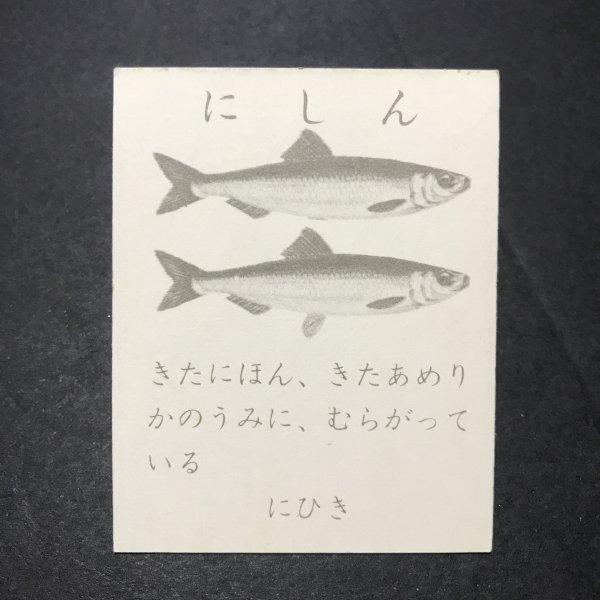 にしん
きたにほん、きたあめり
かのうみに、むらがって
いる
にひき